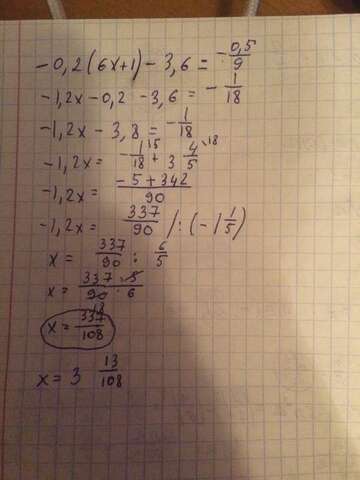 -0,2(6x+1) - 3,6 = -0,5/9
-1,2x - 0,2 - 3,6 = -1/18
-1,2x - 3,8 = -1/18
-1,2x = -1/18 15 + 3 4/5 ·18
-1,2x = -5+342/90
-1,2x = 337/90 /:(-1 1/5)
x = 337/90 : 6/5
x = 337·5/90·6 18
x = 337/108
x = 3 13/108